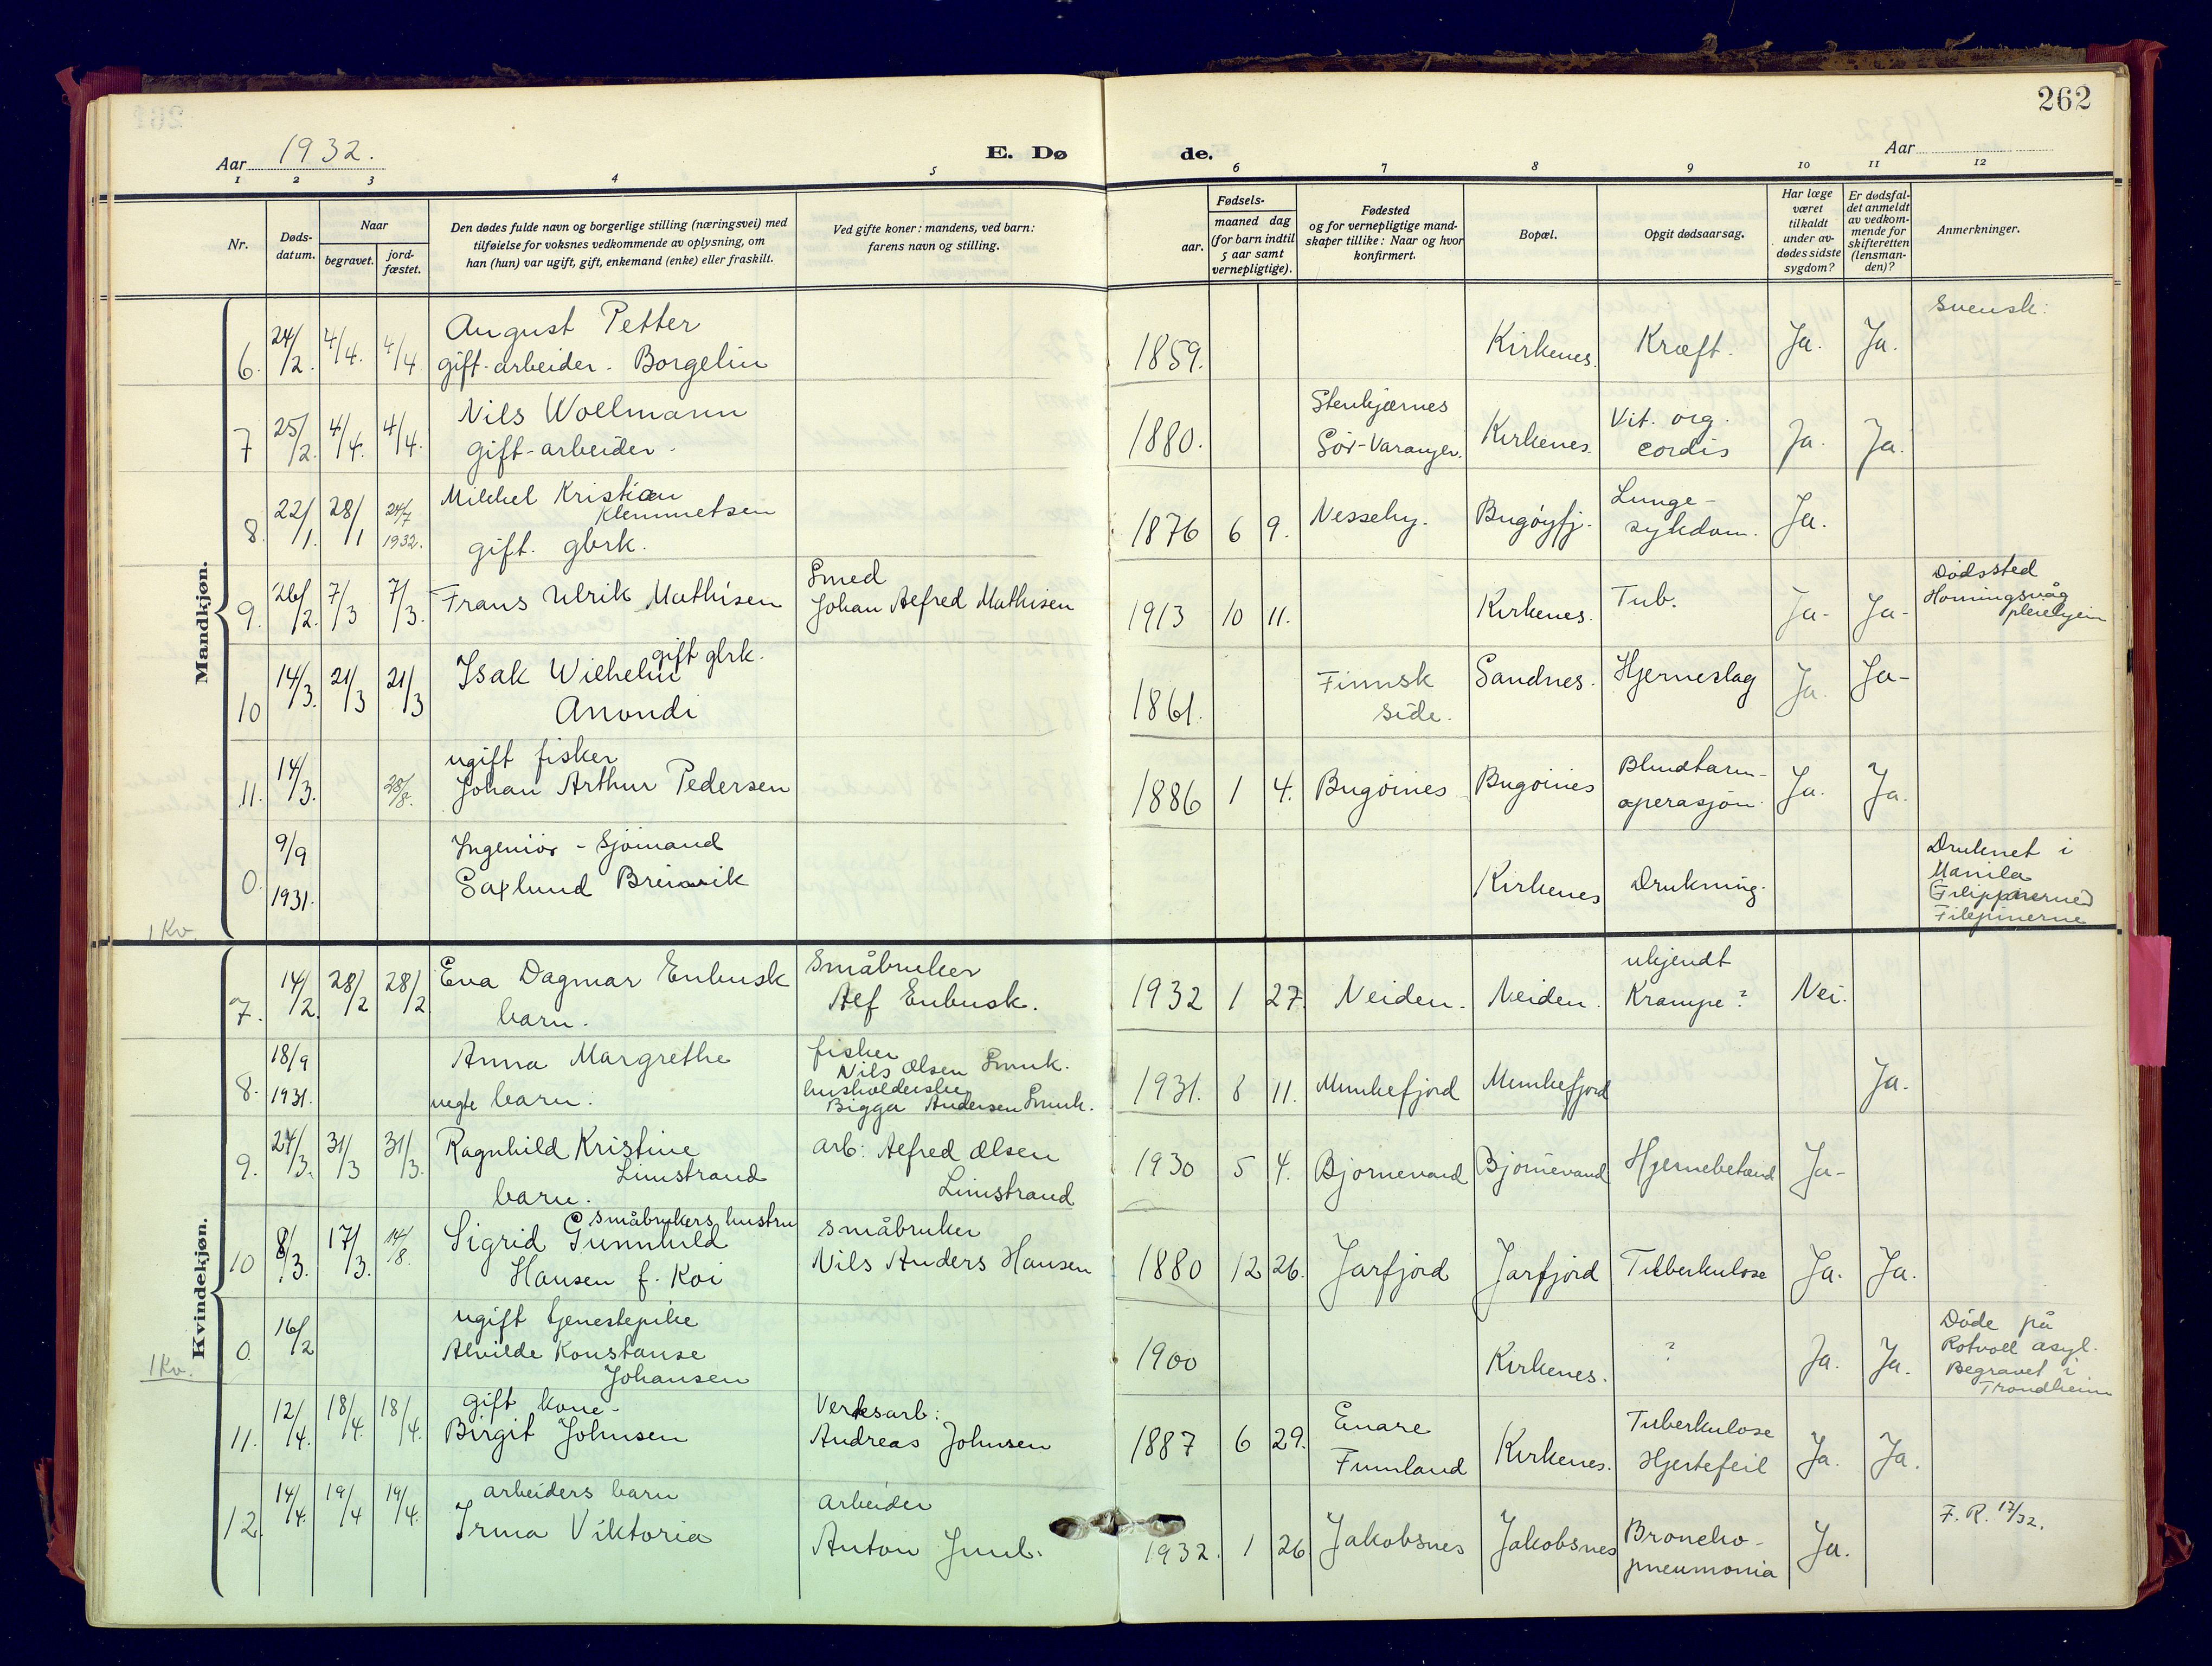 262
Aar 1932.
E. Dø de.
Aar
1 2 3 4 5 6 7 8 9 10 11 12
Nr.
Døds-
datum.
Naar
begravet.
jord-
fæstet.
Den dødes fulde navn og borgerlige stilling (næringsvei) med
tilføielse for voksnes vedkommende av oplysning, om
han (hun) var ugift, gift, enkemand (enke) eller fraskilt.
Ved gifte koner: mandens, ved barn:
farens navn og stilling.
Fødsels-
aar.
maaned dag
(for barn indtil
5 aar samt
vernepligtige).
Fødested
og for vernepligtige mand-
skaper tillike: Naar og hvor
konfirmert.
Bopæl.
Opgit dødsaarsag.
Har læge
været
tilkaldt
under av-
dødes sidste
sygdom?
Er dødsfal-
det anmeldt
av vedkom-
mende for
skifteretten
(lensman-
den)?
Anmerkninger.
Mandkjøn.
6. 24/2. 4/4. 4/4
August Petter
gift-arbeider. Borgelin
1859. Kirkenes. Kræft. Ja. Ja.
svensk:
7 25/2. 4/4. 4/4.
Nils Wollmann
gift-arbeider.
1880.
Stenkjærnes
Sør-Varanger.
Kirkenes.
Vit. org.
cordis
Ja. Ja.
8. 22/1. 28/1 24/7
1932.
Mikkel Kristian
Klemmetsen
gift. gbrk.
1876 6 9. Nesseby. Bugøyfj.
Lunge-
sykdom.
Ja.
9. 26/2. 7/3 7/3.
Frans Ulrik Mathisen
Smed
Johan Alfred Mathisen
1913 10 11. Kirkenes. Tub. Ja- Ja-
Dødssted
Honningsvåg
pleiehjem
10 14/3. 21/3 21/3
gift gbrk.
Isak Wilhelm
Anondi
1861.
Finnsk
side.
Sandnes. Hjerneslag Ja. Ja-
11. 14/3. 28/8.
ugift fisker
Johan Arthur Pedersen
1886 1 4. Bugøines Bugøines
Blindtarm-
operasjon.
Ja. Ja.
0. 9/9
1931.
Ingeniør - sjømand
Saxlund Breivik
Kirkenes Drukning.
Druknet i
Manila
(Filippinerne)
Filipinerne
1 Kv.
Kvindekjøn.
7. 14/2. 28/2 28/2
Eva Dagmar Enbusk
barn.
Småbruker
Alf Enbusk.
1932 1 27. Neiden. Neiden.
ukjendt
Krampe?
Nei.
8. 18/9
1931.
Anna Margrethe
uegte barn.
fisker
Nils Olsen Smuk.
husholderske
Bigga Andersen Smuk.
1931. 8 11. Munkefjord Munkefjord Ja.
9. 24/3. 31/3 31/3.
Ragnhild Kristine
Limstrand
barn.
arb: Alfred Olsen
Limstrand
1930 5 4. Bjørnevand Bjørnevand Hjernebetænd Ja-
10 8/3. 17/3. 14/8.
småbrukers hustru
Sigrid Gunnhild
Hansen f. Koi
småbruker
Nils Anders Hansen
1880 12 26. Jarfjord Jarfjord Tuberkulose Ja. Ja.
0. 16/2
ugift tjenestepike
Alvilde Konstanse
Johansen
1900 Kirkenes. ? Ja. Ja.
Døde på
Rotvoll asyl.
Begravet i
Trondheim
1 Kv.
11. 12/4. 18/4. 18/4.
gift kone-
Birgit Johnsen
Verksarb:
Andreas Johnsen
1887 6 29.
Enare
Finnland
Kirkenes.
Tuberkulose
Hjertefeil
Ja. Ja.
12. 14/4. 19/4 19/4.
arbeiders barn
Irma Viktoria
arbeider
Anton
1932. 1 26 Jakobsnes Jakobsnes
Broncho-
pneumonia
Ja.
F. R. 17/32.